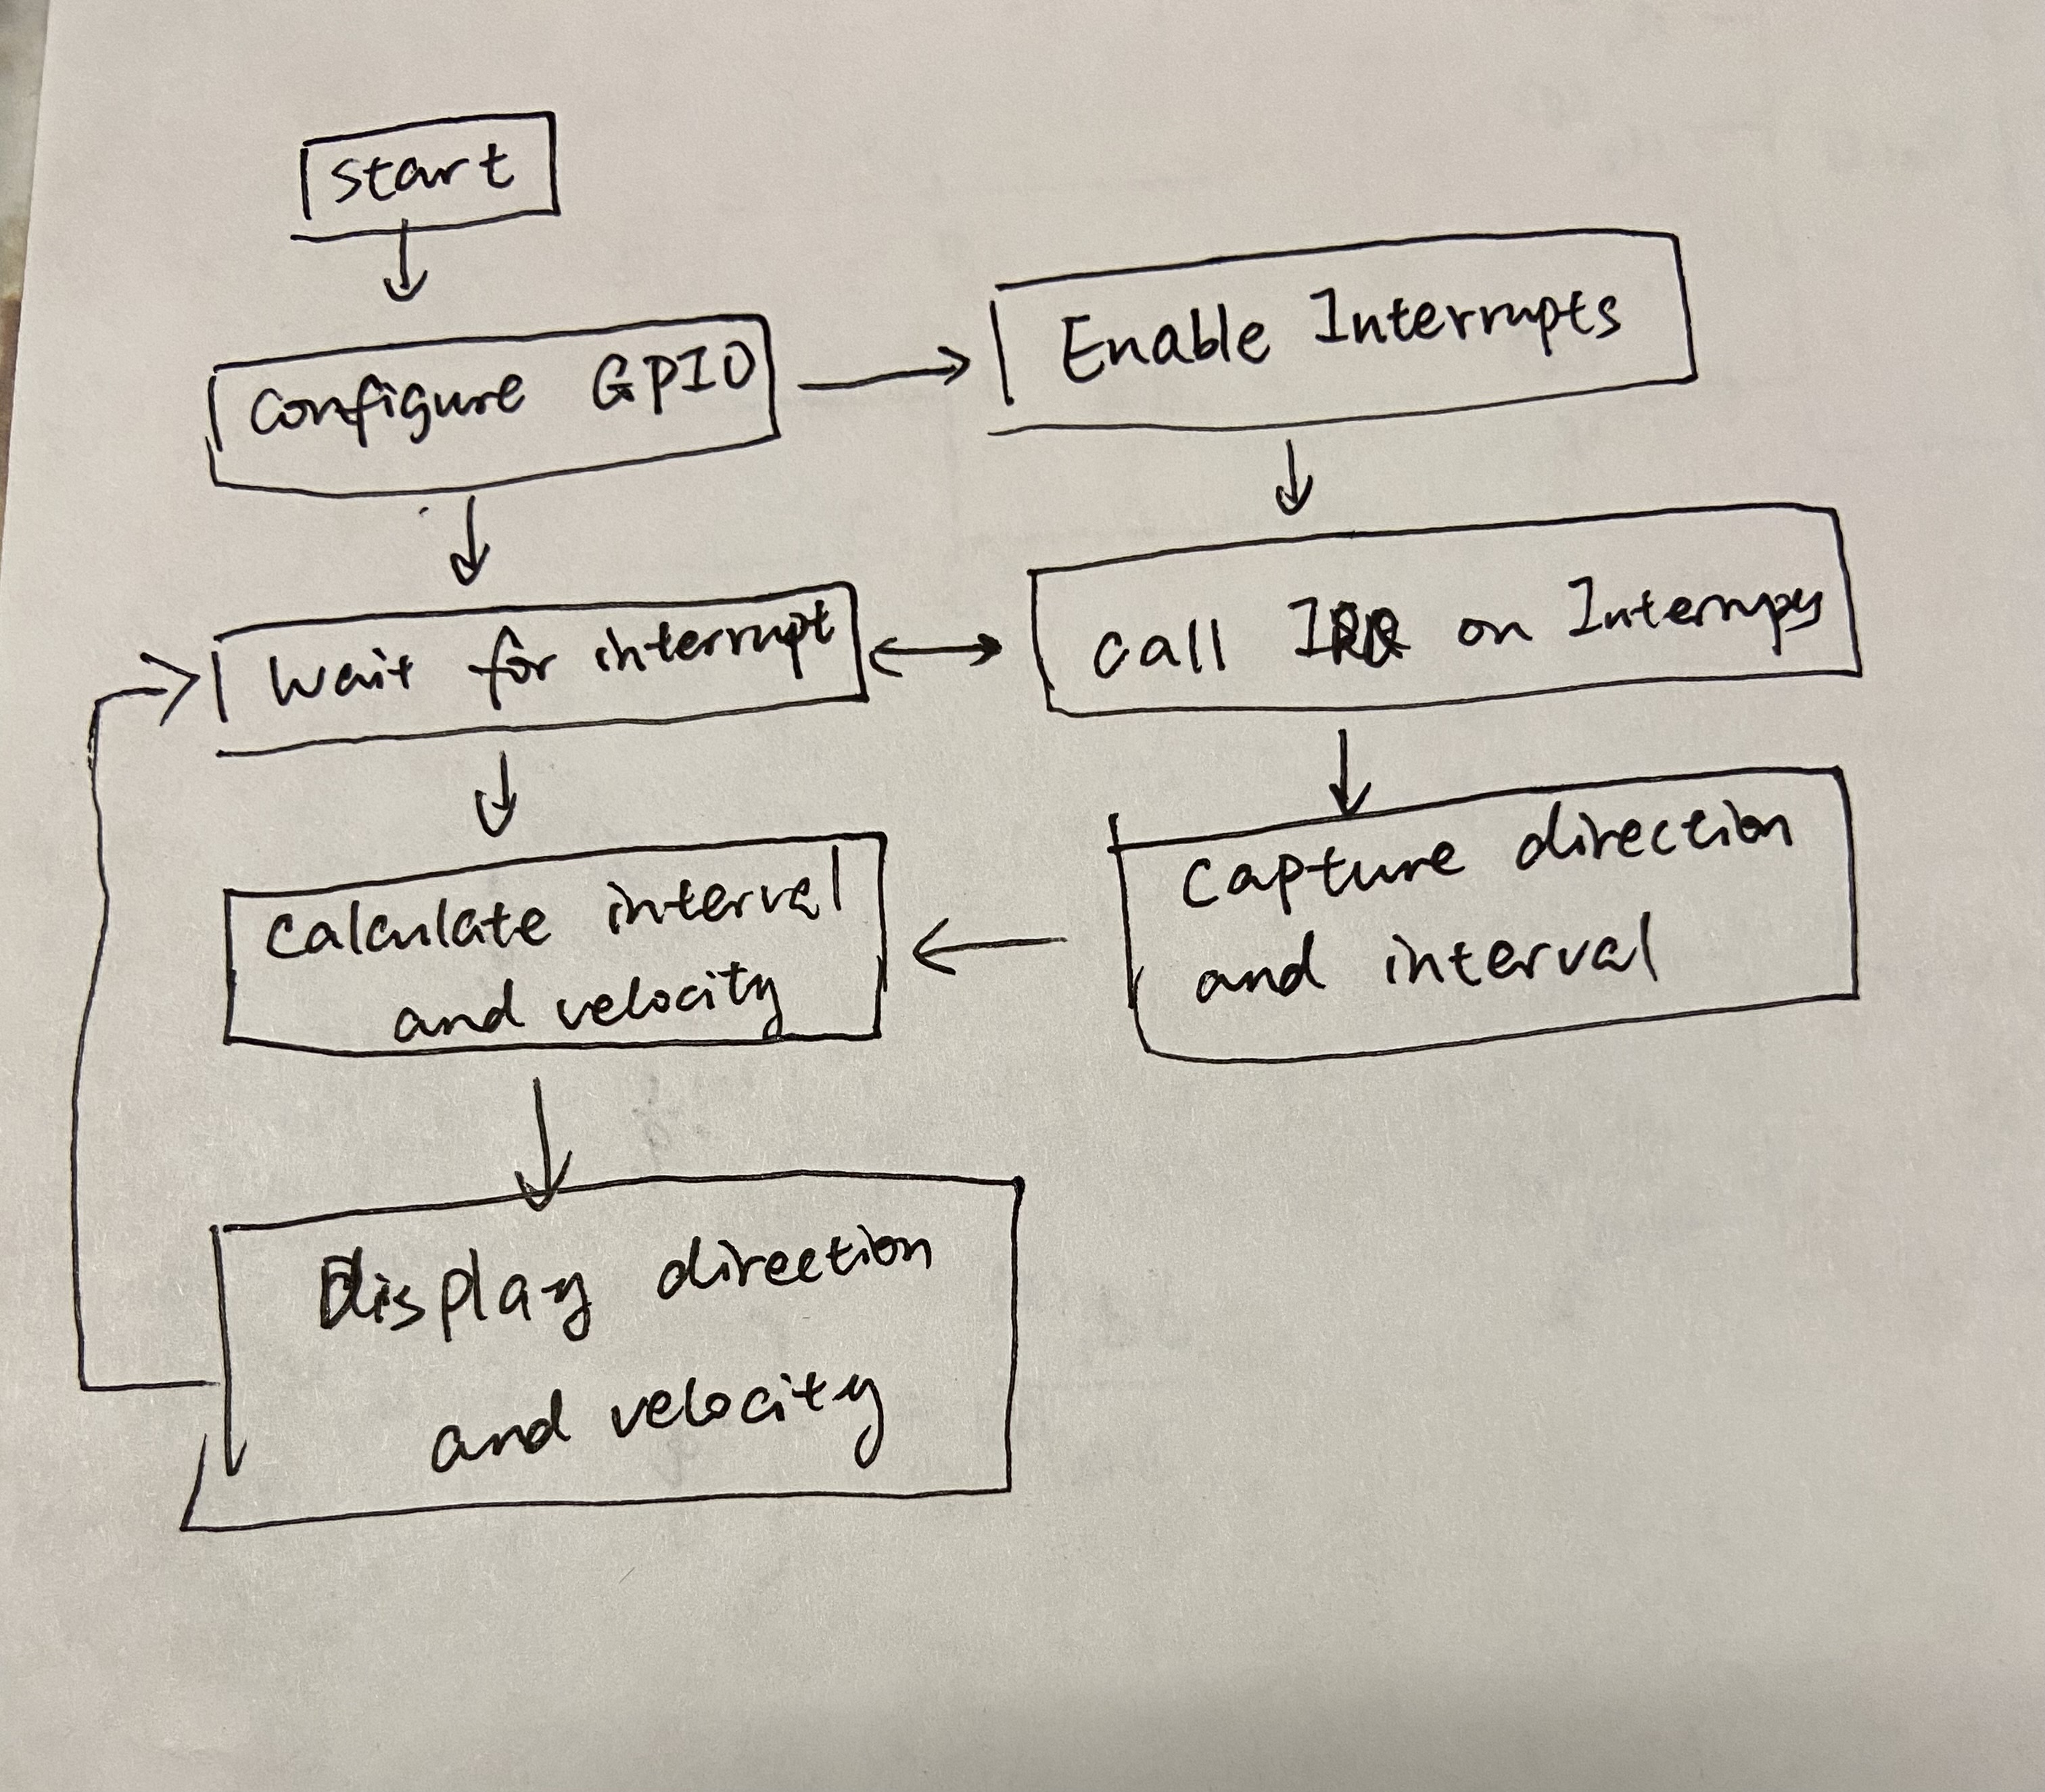 start
configure GPIO
Enable Interrupts
wait for interrupt
call IRQ on Interrupys
calculate interval
and velocity
capture direction
and interval
Display direction
and velocity